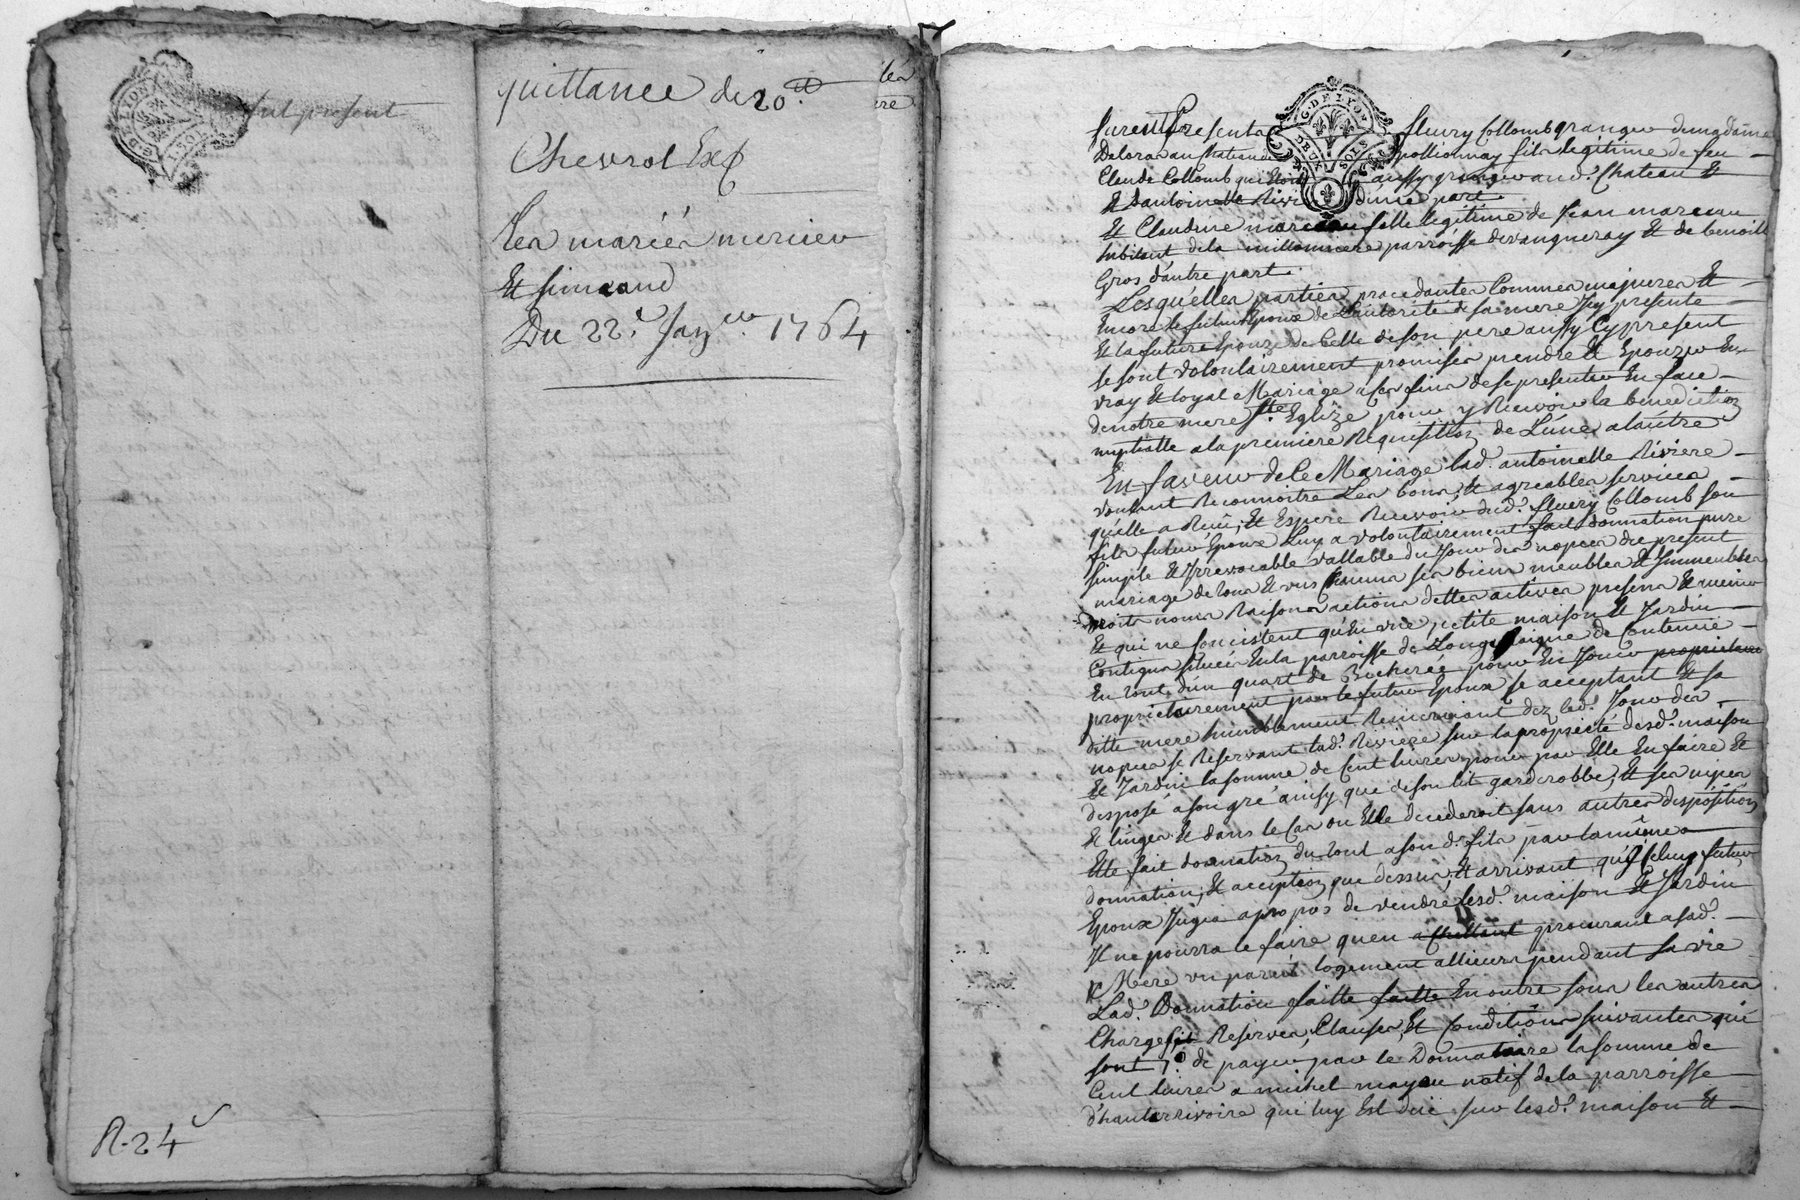 fut present
G. DE LYON
2 SOLS
quittance de 20.tt
Chevrol Exp
Les mariés mercier
Et simaand
Du 22.e Janver 1764
R. 24
Furent Presents fleury Collomb granger dumadame
Deloras au Chateau de pollionnay fils legitime de feu
Claude Collomb qui Etoit aussy granger aud. Chateau Et
Et d'antoinette Rivi d'une part.
G. DE LYON
DEUX SOLS
Et Claudine mareau fille legitime de Jean mareau
habitant de la millonniere parroisse de vaugneray Et de benoitte
Gros d'autre part.
Lesquelles parties procedantes Comme majeures Et
Encore le futur Epoux de L'autorité de sa mere Icy presente
Et la future Epouze de Celle de son pere aussy Cy present
se sont volontairement promises prendre Et Epouzer En
vray Et loyal Mariage a ces fins de se presenter En face
de notre mere Ste. Eglize pour y Recevoir la benediction
nuptialle a la premiere Requisition de L'une a l'autre
En faveur de Ce Mariage lad. antoinette Riviere
voulant Reconnoitre Les bons Et agreables services
qu'elle a Reçu, Et Espere Recevoir dud. fleury Collomb son
fils futur Epoux Luy a volontairement fait donnation pure
simple Et Irrevocable vallable du Jour des nopces du present
mariage de tous Et vns Chacuns ses biens meubles Et Immeubles
droits noms Raisons actions dettes actives presens Et avenir
Et qui ne consistent qu'En vne petite maison Et Jardin
Contigus situés En la parroisse de Longessaigne de Contenue
En tout d'un quart de Bicherée pour En Jouir proprietaire
proprietairement par le futur Epoux se acceptant Et sa
ditte mere humblement Remerciant dez led. Jour des
nopces se Reservant lad. Riviere sur la proprieté desd. maison
Et Jardin la somme de Cent livres pour par Elle En faire Et
disposé a son gré ainsy que de son lit garderobbe, Et ses nipes
Et linges Et dans le Cas ou Elle decederoit sans autres disposition
Elle fait donnation du tout a son d. fils par la même
donnation, Et acception que dessus, Et arrivant qu'Iceluy futur
Epoux Jugea apropos de vendre lesd. maison Et Jardin
Il ne pourra le faire qu'en achettant procurant a sad.
Mere vn pareil logement allieurs pendant sa vie
Lad. Donnation faitte faitte En outre sous les autres
Charges, Reserves, Clauses, Et Conditions suivantes qui
sont 1.o de payer par le Donnataire la somme de
Cent livres a michel mayeu natif de la parroisse
d'hauterrivoire qui luy Est düe sur lesd. maison Et